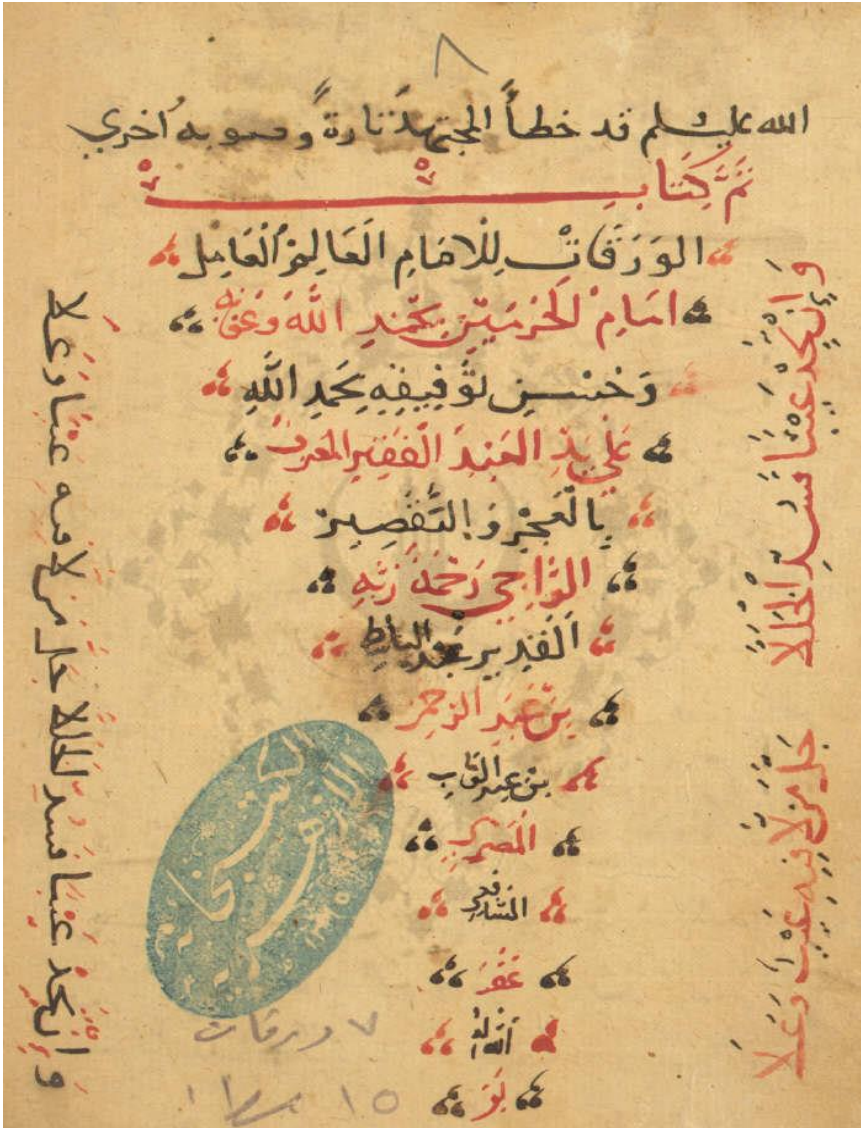 ٨
الله عليه سلم قد خطأ المجتهد تارة وصوبه أخرى
تم كتاب
الورقات للامام العالم العامل
امام الحرمين بحمد الله وعونه
وحسن توفيقه بحمد الله
على يد العبد الفقير المعرف
بالعجز والتقصير
الراجي رحمة ربه
القدير عبد الباسط
بن عبد الرحمن
بن عبد الوهاب
المصري
الشافعي
غفر
الله له
وان تجد عيبا فسد الخللا
جل من لا فيه عيب وعلا
وان تجد عيبا فسد الخللا جل من لا فيه عيبا وعلا
الكتبخانة
الازهرية
٧ ورقات
١٥